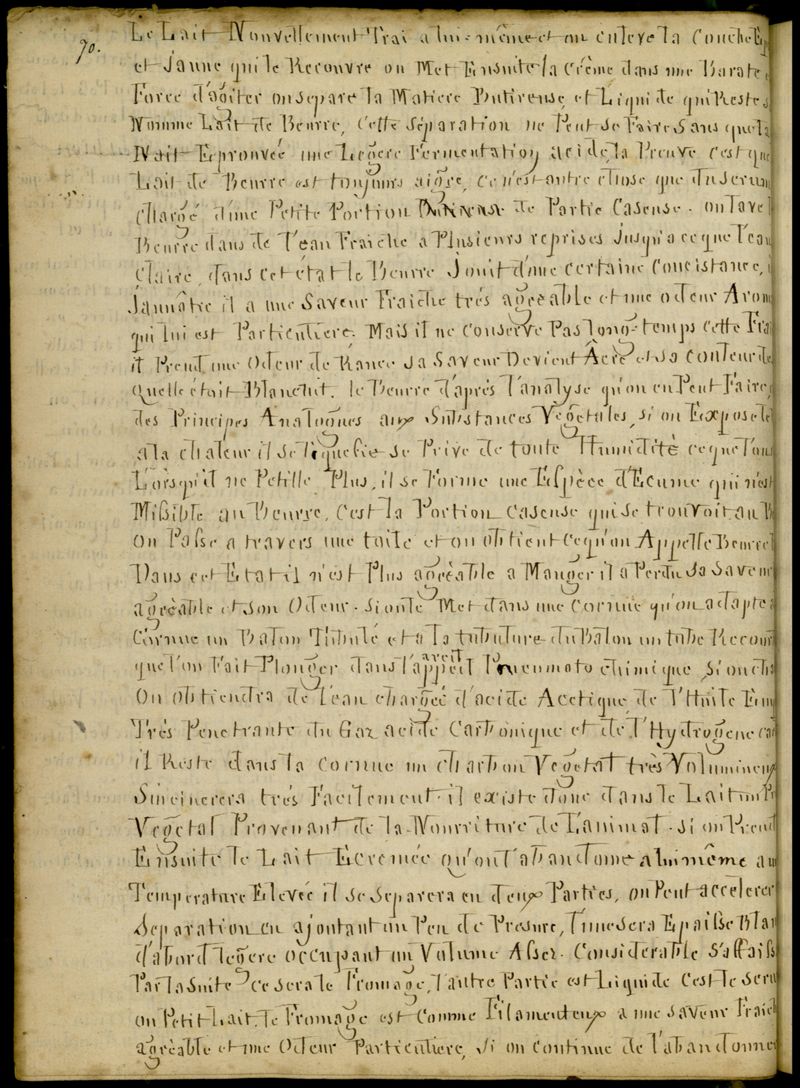 70.
Le Lait Nouvellement Trai a lui-même et on enleve la Couche Ep
et Jaune qui le Recouvre on Met Ensuite la Crême dans une Barate
Force d'agiter on separe la Matiere Butireuse, et Liquide qui Reste
Nomme Lait de Beurre, Cette separation ne Peut se Faire Sans que la
Nait Eprouvée une Legere Fermentation acide, la Preuve c'est que
Lait de Beurre est toujours aigre, ce n'est autre chose que du serum
Chargé d'une Petite Portion de Partie Caseuse. on lave
Beurre dans de l'eau Fraiche a Plusieurs reprises jusqu'a ce que l'eau
Claire, dans cet état le Beurre Jouit d'une certaine Concistance,
Jaunâtre il a une Saveur Fraiche très agréable et une odeur Arom
qui lui est Particuliere. Mais il ne Conserve Pas long-temps cette Frai
il Prend une Odeur de Rance sa Saveur Devient Acre et sa Couleur de
Quelle était Blanchit. le Beurre d'après l'analyse qu'on en Peut Faire,
des Principes Analogues aux Substances Vegetales, si on l'Expose
a la chaleur il se liquefie se Prive de toute Humidité ce que l'on
Lorsqu'il ne Petille Plus, il se Forme une Espèce d'Ecume qui n'est
Mißible au Beurre, C'est la Portion Caseuse qui se trouvoit au B
On Passe a travers une toile et on obtient ce qu'on Appelle Beurre
Dans cet Etat il n'est Plus agréable a Manger il a Perdu Sa Saveur
agréable et Son Odeur. Si on le Met dans une Cornue qu'on adapte
Cornue un Balon Tubulé et a la tubulure du Balon un tube Recour
que l'on Fait Plonger dans l'appareil Pneumato chimique, si on
On obtiendra de l'eau chargée d'acide Acetique de l'Huile
Très Penetrante du Gaz acide Carbonique et de l'Hydrogene
il Reste dans la Cornue un charbon Vegetal très Volumineux
S'incinerera très Facilement. il existe donc dans le Lait un
Vegetal Provenant de la Nourriture de l'animal. Si on Prend
Ensuite le Lait Ecremée qu'on l'abandonne a lui même au
Temperature Elevée il se separera en deux Parties, on Peut accelerer
Separation en ajoutant un Peu de Presure, l'une sera Epaisse Blan
d'abord legere occupant un Volume Assez Considerable s'affaiss
Par la Suite ce sera le Fromage, l'autre Partie est Liquide C'est le Seru
ou Petit Lait. le Fromage est Comme Filamenteux a une Saveur Fraich
agréable et une Odeur Particuliere, si on continue de l'abandonner